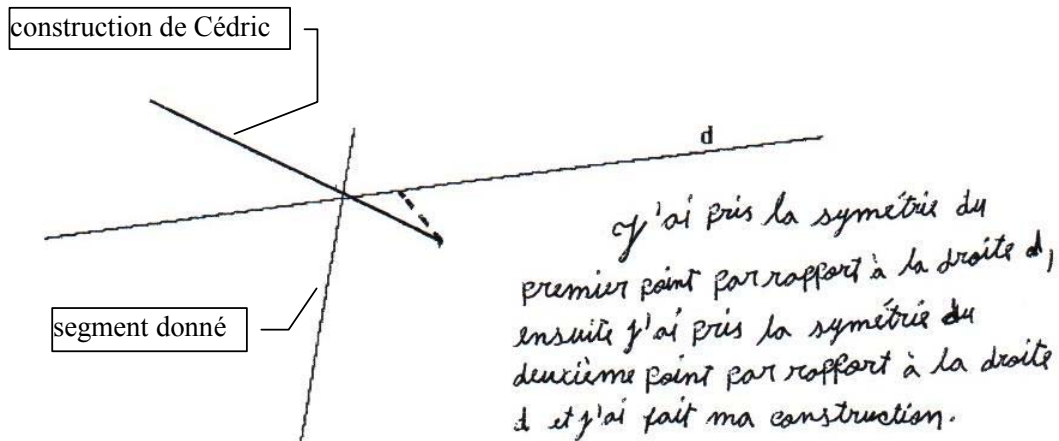 construction de Cédric
d
segment donné
J'ai pris la symétrie du
premier point par rapport à la droite d,
ensuite j'ai pris la symétrie du
deuxième point par rapport à la droite
d et j'ai fait ma construction.